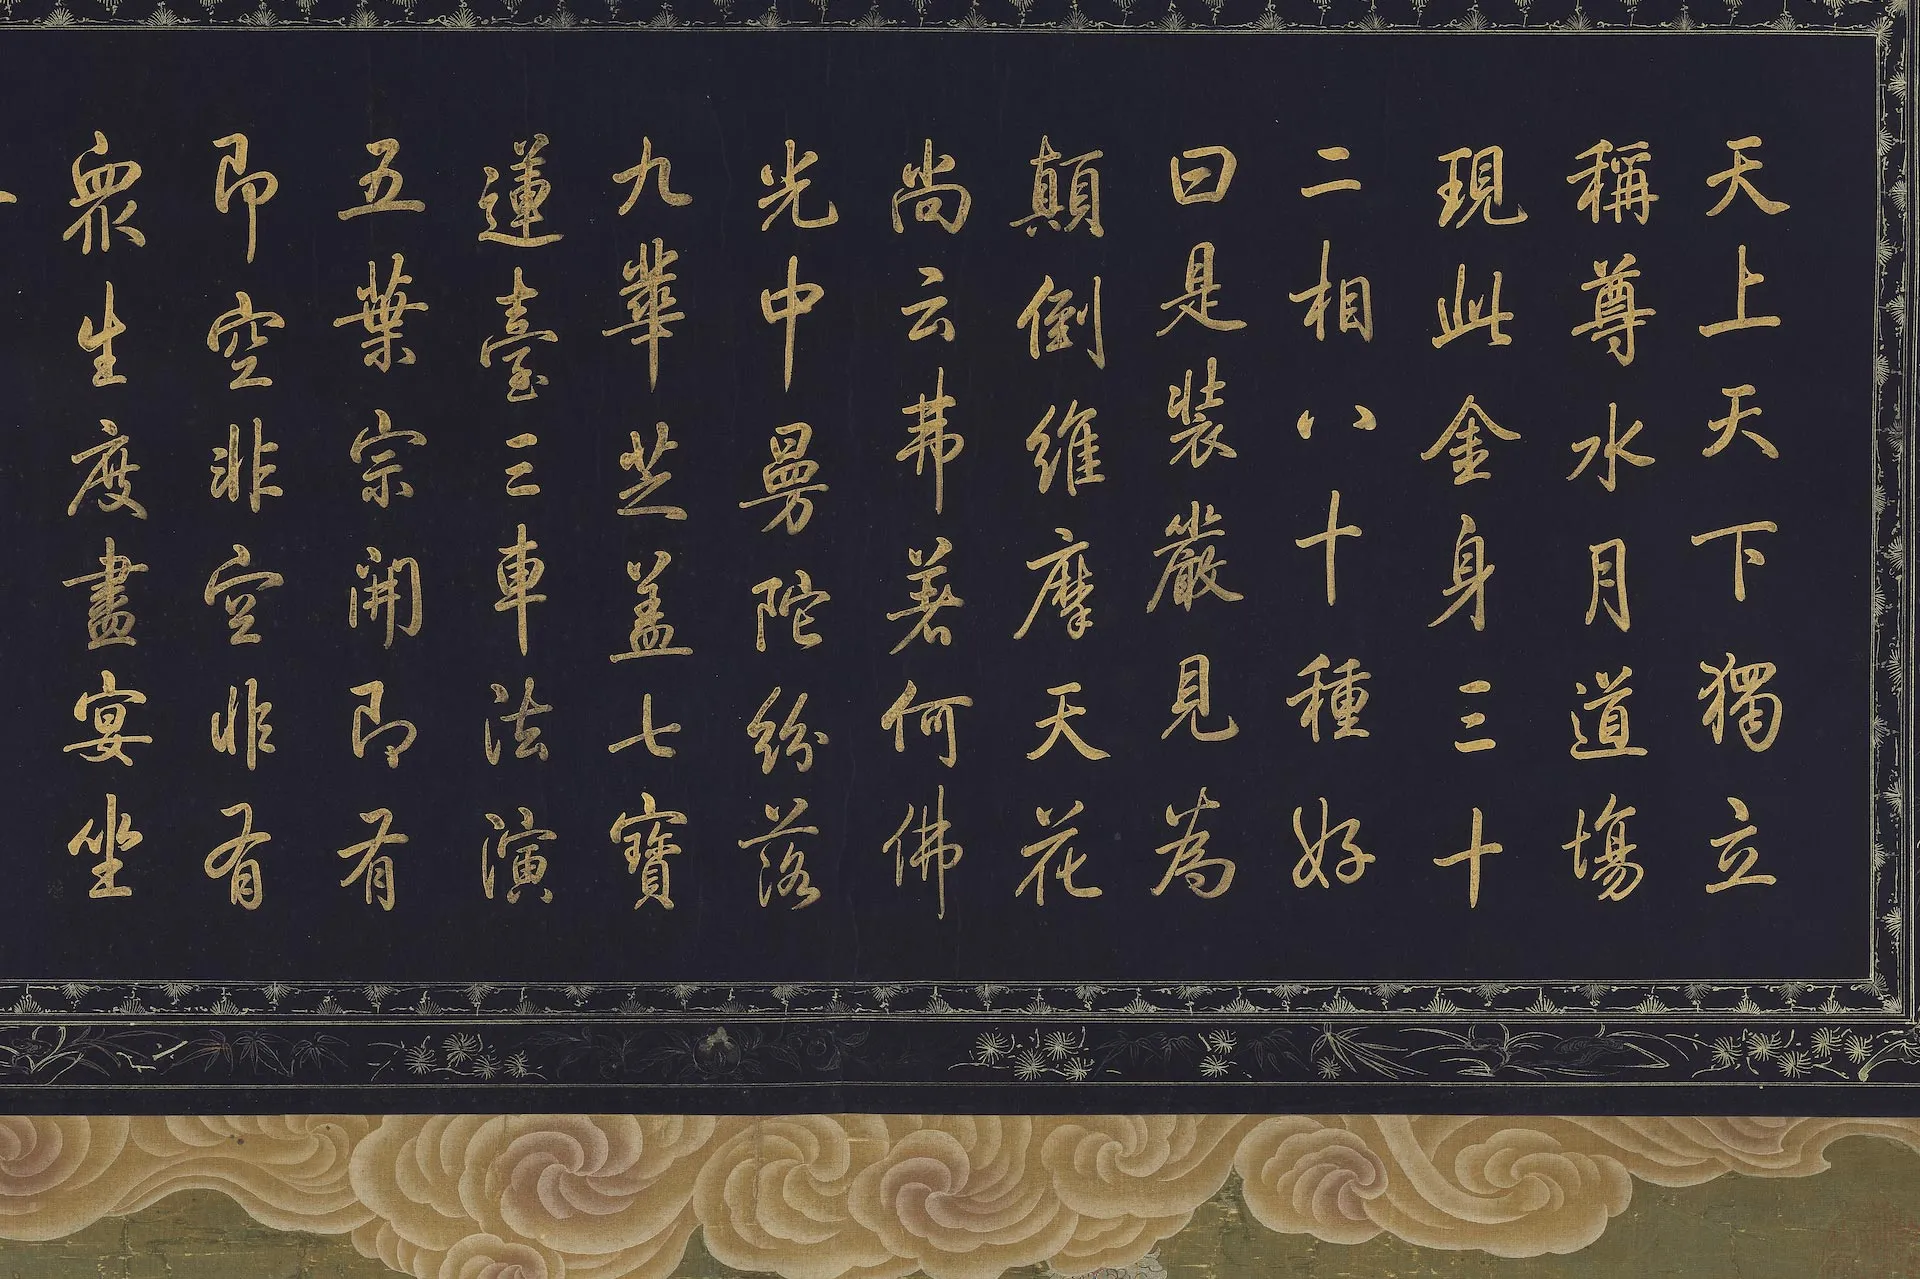 天上天下獨立
稱尊水月道場
現此金身三十
二相八十種好
曰是裝嚴見為
顛倒維摩天花
尚云弗著何佛
光中曼陀紛落
九華芝蓋七寶
蓮臺三車法演
五葉宗開即有
即空非空非有
衆生度盡宴坐